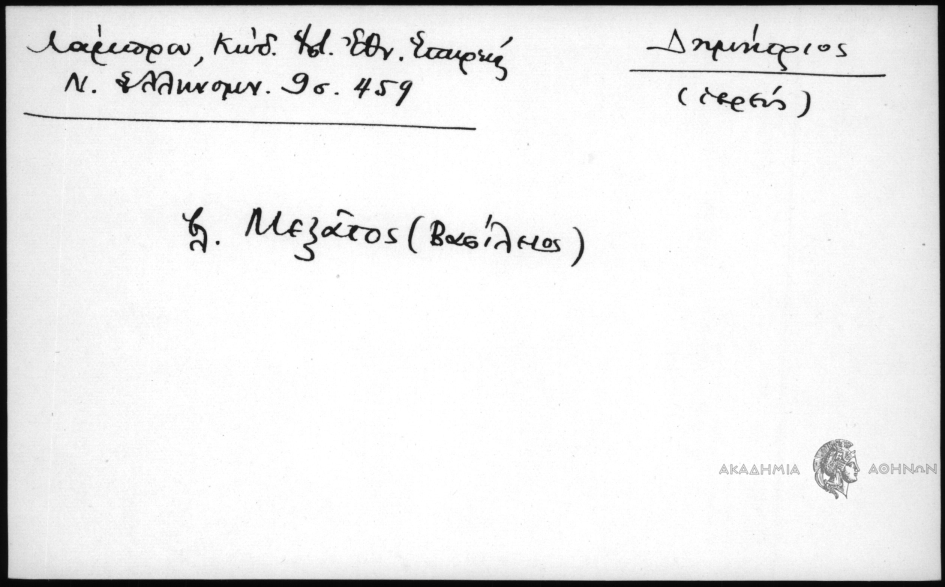 Λάμπρου, Κώδ. Ἱστ. Ἐθν. Ἑταιρείας
Ν. Ἑλληνομν. 9 σ. 459
Δημήτριος
(ἱερεύς)
βλ. Μεζᾶτος (Βασίλειος)
ΑΚΑΔΗΜΙΑ ΑΘΗΝΩΝ